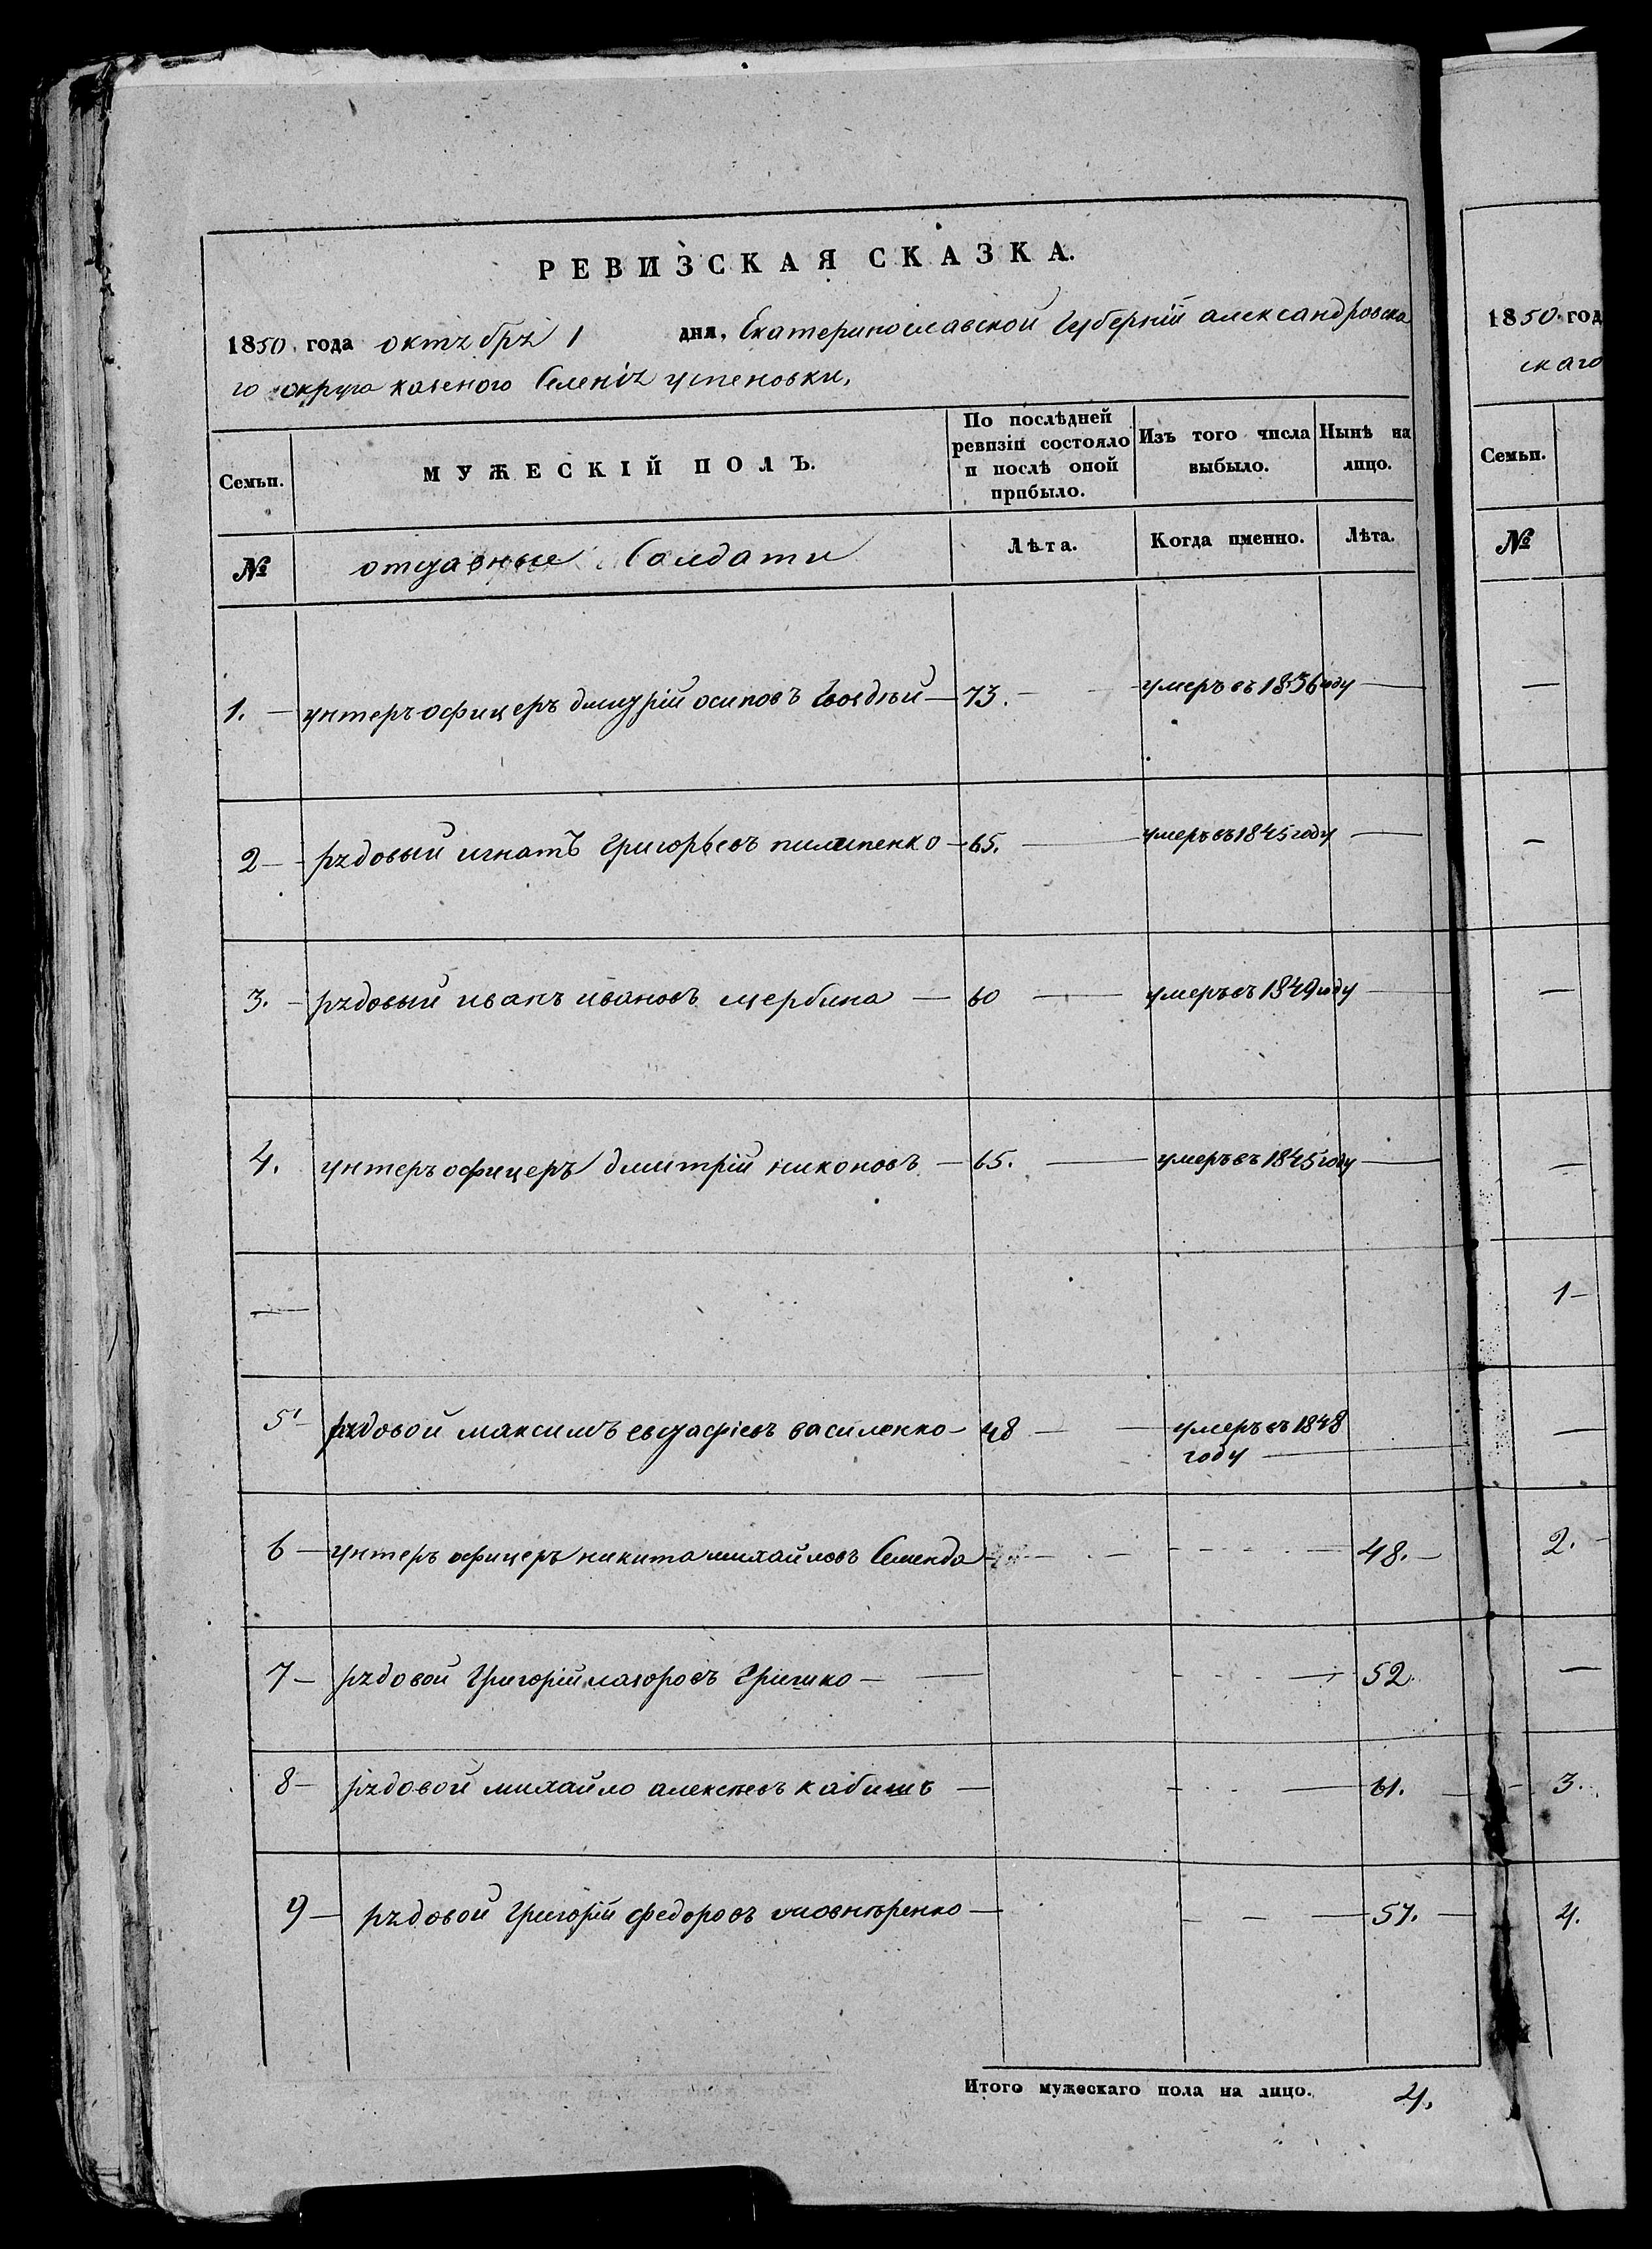 РЕВИЗСКАЯ СКАЗКА.
1850 года октября 1 дня, Екатеринославской Губерніи александровска
го округа казеного Селенія успеновки,
Семьи.
МУЖЕСКІЙ ПОЛЪ.
По послѣдней ревизіи состояло и послѣ оной прибыло.
Изъ того числа выбыло.
Нынѣ на лицо.
№ отставные Солдати Лѣта. Когда именно. Лѣта.
1. унтеръ офицеръ дмитрій осиповъ 73. умеръ въ 1836 году
2 рядовый игнатъ Григорьевъ пилипенко 65. умеръ въ 1845 году
3. рядовый иванъ ивановъ щербина 60 умеръ въ 1849 году
4. унтеръ офицеръ дмитрій никоновъ 65. умеръ въ 1845 году
5 рядовой максимъ евстафіевъ василенко 48 умеръ въ 1848
году
6 унтеръ офицеръ никита михайловъ Семенда 48.
7 рядовой Григорій лазоровъ Гришко 52
8 рядовой михайло алексѣевъ кабишъ 61.
9 рядовой Григорій федоровъ 57.
Итого мужескаго пола на лицо. 4.
1850 год
скаго
Семьи.
№
1
2.
3.
4.